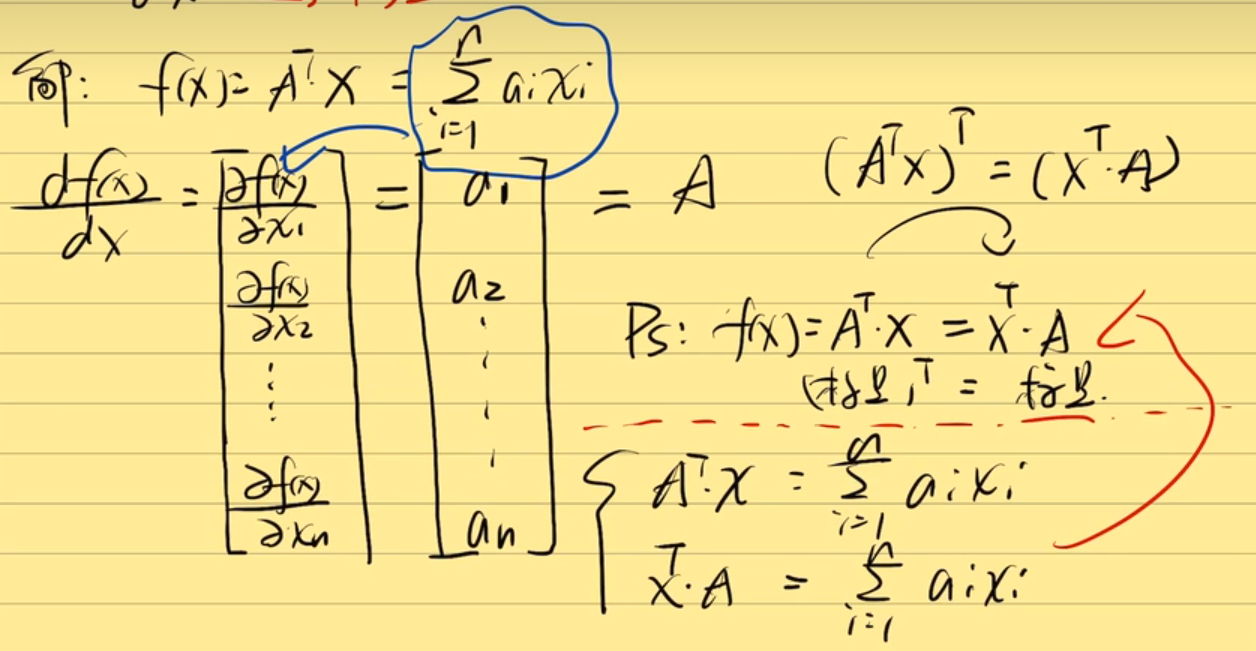 即: f(x)= Aᵀ·X = ∑ᵢ₌₁ⁿ aᵢxᵢ
df(x)/dx = [∂f(x)/∂x₁ ∂f(x)/∂x₂ ⋮ ∂f(x)/∂xₙ] = [a₁ a₂ ⋮ aₙ] = A
(Aᵀx)ᵀ = (xᵀ·A)
Ps: f(x)=Aᵀ·X = Xᵀ·A
(标量)ᵀ = 标量.
{ Aᵀ·X = ∑ᵢ₌₁ⁿ aᵢxᵢ
Xᵀ·A = ∑ᵢ₌₁ⁿ aᵢxᵢ